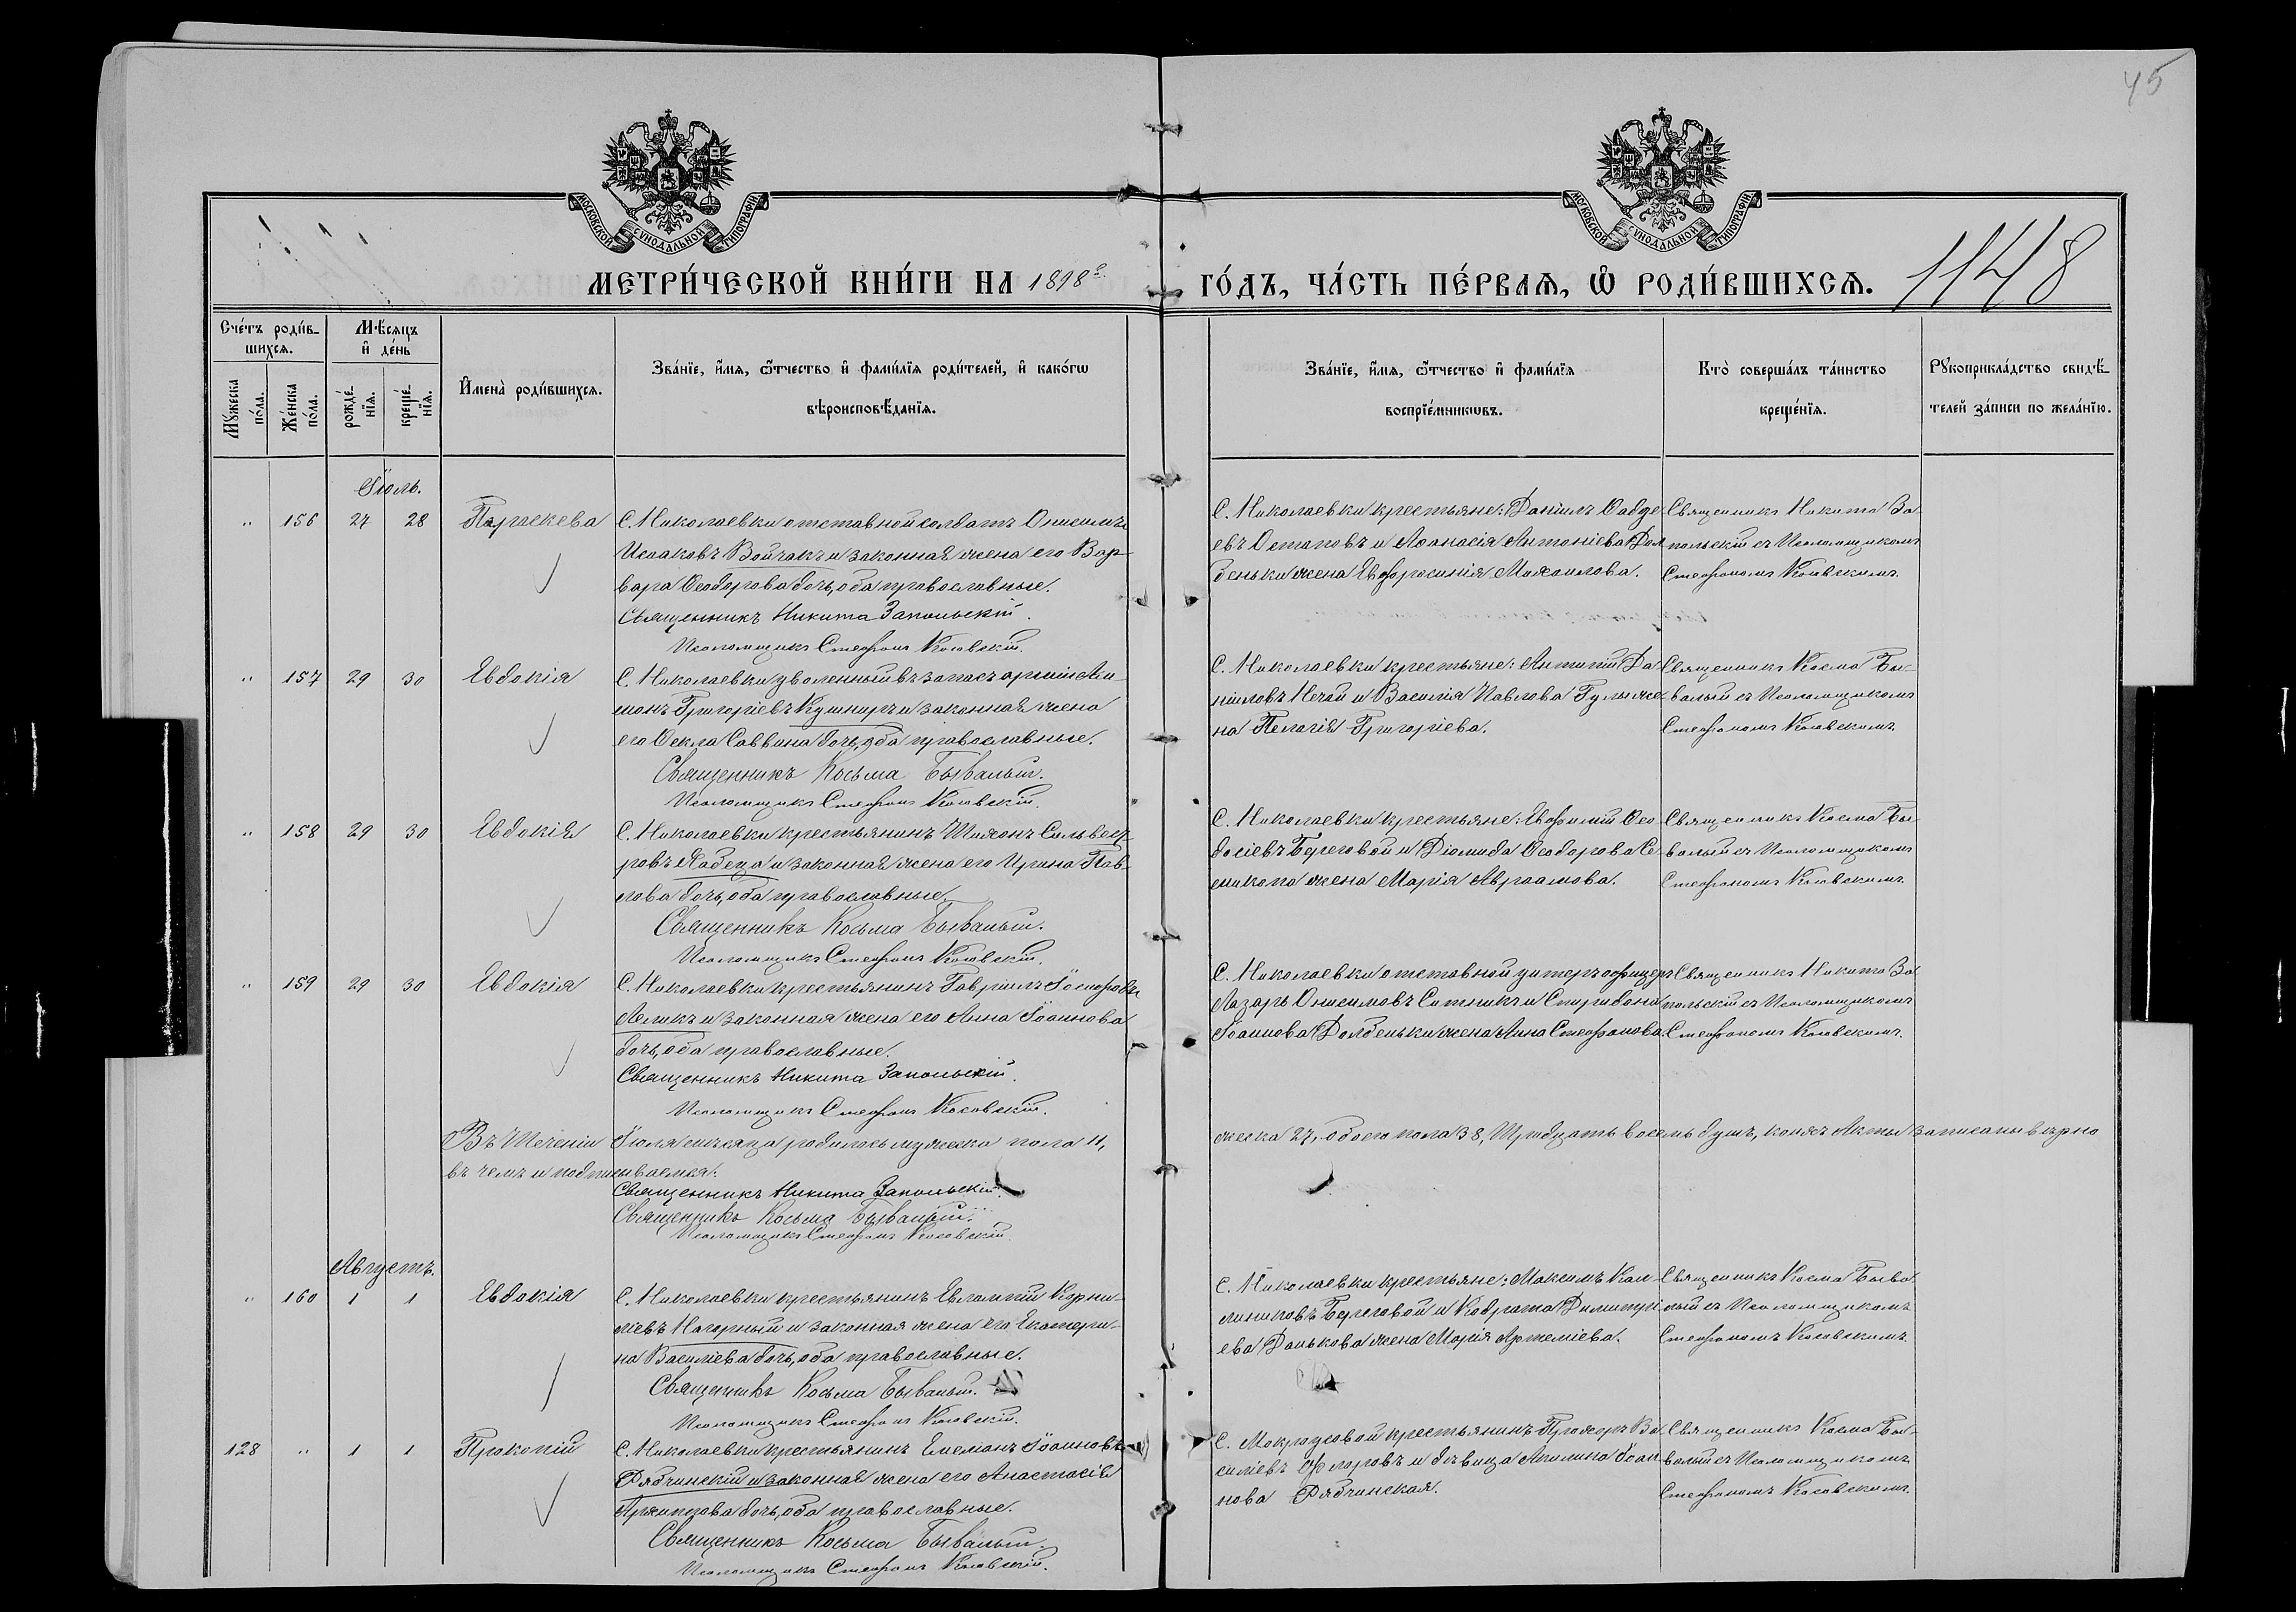 45
МОСКОВСКОЙ СѴНОДАЛЬНОЙ ТИПОГРАФІИ
МОСКОВСКОЙ СѴНОДАЛЬНОЙ ТИПОГРАФІИ
МЕТРИ́ЧЕСКОЙ КНИ́ГИ НА 1898й ГО́ДЪ, ЧА́СТЬ ПЕ́РВАѦ, Ѽ РОДИ́ВШИХСѦ.
1148
Сче́тъ роди́в-
шихсѧ.
Мꙋ́жеска по́ла.
Же́нска по́ла.
Мѣ́сѧцъ
и҆ де́нь
рожде́-
нїѧ.
креще́-
нїѧ.
И҆мена̀ роди́вшихсѧ.
Зва́нїе, и҆́мѧ, ѻ҆́тчество и҆ фами́лїѧ роди́телей, и҆ како́гѡ
вѣроисповѣ́данїѧ.
Зва́нїе, и҆́мѧ, ѻ҆́тчество и҆ фами́лїѧ
воспрїе́мникѡвъ.
Кто̀ соверша́лъ та́инство
креще́нїѧ.
Рꙋкоприкла́дство свидѣ́-
телей за́писи по жела́нїю.
Іюль.
" 156 27 28 Параскева
С. Николаевки отставной солдатъ Онисимъ
Исааковъ Войчакъ и законная жена его Вар-
вара Ѳеодорова дочь, оба православные.
Священникъ Никита Запольскій.
Псаломщикъ Стефанъ Косовскій.
С. Николаевки крестьяне: Даніилъ
евъ Остаповъ и Аѳанасія Антоніева Дол
беньки жена Евфросинія Михаилова.
Священникъ Никита За-
польскій съ Псаломщикомъ
Стефаномъ Косовскимъ.
" 157 29 30 Евдокія
С. Николаевки уволенный въ запасъ арміи
Григоріевъ Кушниръ и законная жена
его Ѳекла Саввина дочь, оба православные.
Священникъ Косьма Бывалый.
Псаломщикъ Стефанъ Косовскій.
С. Николаевки крестьяне: Антипій Да-
ніиловъ Нечай и Василія Павлова Гулы же-
на Пелагія Григоріева.
Священникъ Косма Бы-
валый съ Псаломщикомъ
Стефаномъ Косовскимъ.
" 158 29 30 Евдокія
С. Николаевки крестьянинъ Тихонъ Сильвест-
ровъ Бабеца и законная жена его Ирина Пав-
лова дочь, оба православные.
Священникъ Косьма Бывалый.
Псаломщикъ Стефанъ Косовскій.
С. Николаевки крестьяне: Евфимій Ѳео-
досіевъ Береговой и Діомида Ѳеодорова Се-
жена Марія Авраамова.
Священникъ Косма Бы-
валый съ Псаломщикомъ
Стефаномъ Косовскимъ.
" 159 29 30 Евдокія
С. Николаевки крестьянинъ Гавріилъ Іосифовъ
Лелекъ и законная жена его Анна Іоаннова
дочь, оба православные.
Священникъ Никита Запольскій.
Псаломщикъ Стефанъ Косовскій.
С. Николаевки отставной унтеръ офицеръ
Лазарь Онисимовъ Ситникъ и Спиридона
Іоаннова Долбеньки жена Анна Стефанова.
Священникъ Никита За-
польскій съ Псаломщикомъ
Стефаномъ Косовскимъ.
Въ теченіи Іюля мѣсяца родилось мужеска пола 11, женска 27, обоего пола 38, тридцать восемь душъ, коихъ акты записаны вѣрно
въ чемъ и подписываемся:
Священникъ Никита Запольскій.
Священникъ Косьма Бывалый.
Псаломщикъ Стефанъ Косовскій.
Августъ.
" 160 1 1 Евдокія
С. Николаевки крестьянинъ Евлампій Корни-
ліевъ Нагорный и законная жена его Екатери-
на Василіева дочь, оба православные.
Священникъ Косьма Бывалый.
Псаломщикъ Стефанъ Косовскій.
С. Николаевки крестьяне: Максимъ Кал-
линиковъ Береговой и Кодрата Димитрі-
ева Данькова жена Марія Артеміева.
Священникъ Косма Быва-
лый съ Псаломщикомъ
Стефаномъ Косовскимъ.
128 " 1 1 Прокопій
С. Николаевки крестьянинъ Емеліанъ Іоанновъ
Рябчинскій и законная жена его Анастасія
Архиппова дочь, оба православные.
Священникъ Косьма Бывалый.
Псаломщикъ Стефанъ Косовскій.
С. Мокрдуовой крестьянинъ Прохоръ Ва-
силіевъ Фларовъ и дѣвица Акилина Іоан-
нова Рябчинская.
Священникъ Косма Бы-
валый съ Псаломщикомъ
Стефаномъ Косовскимъ.